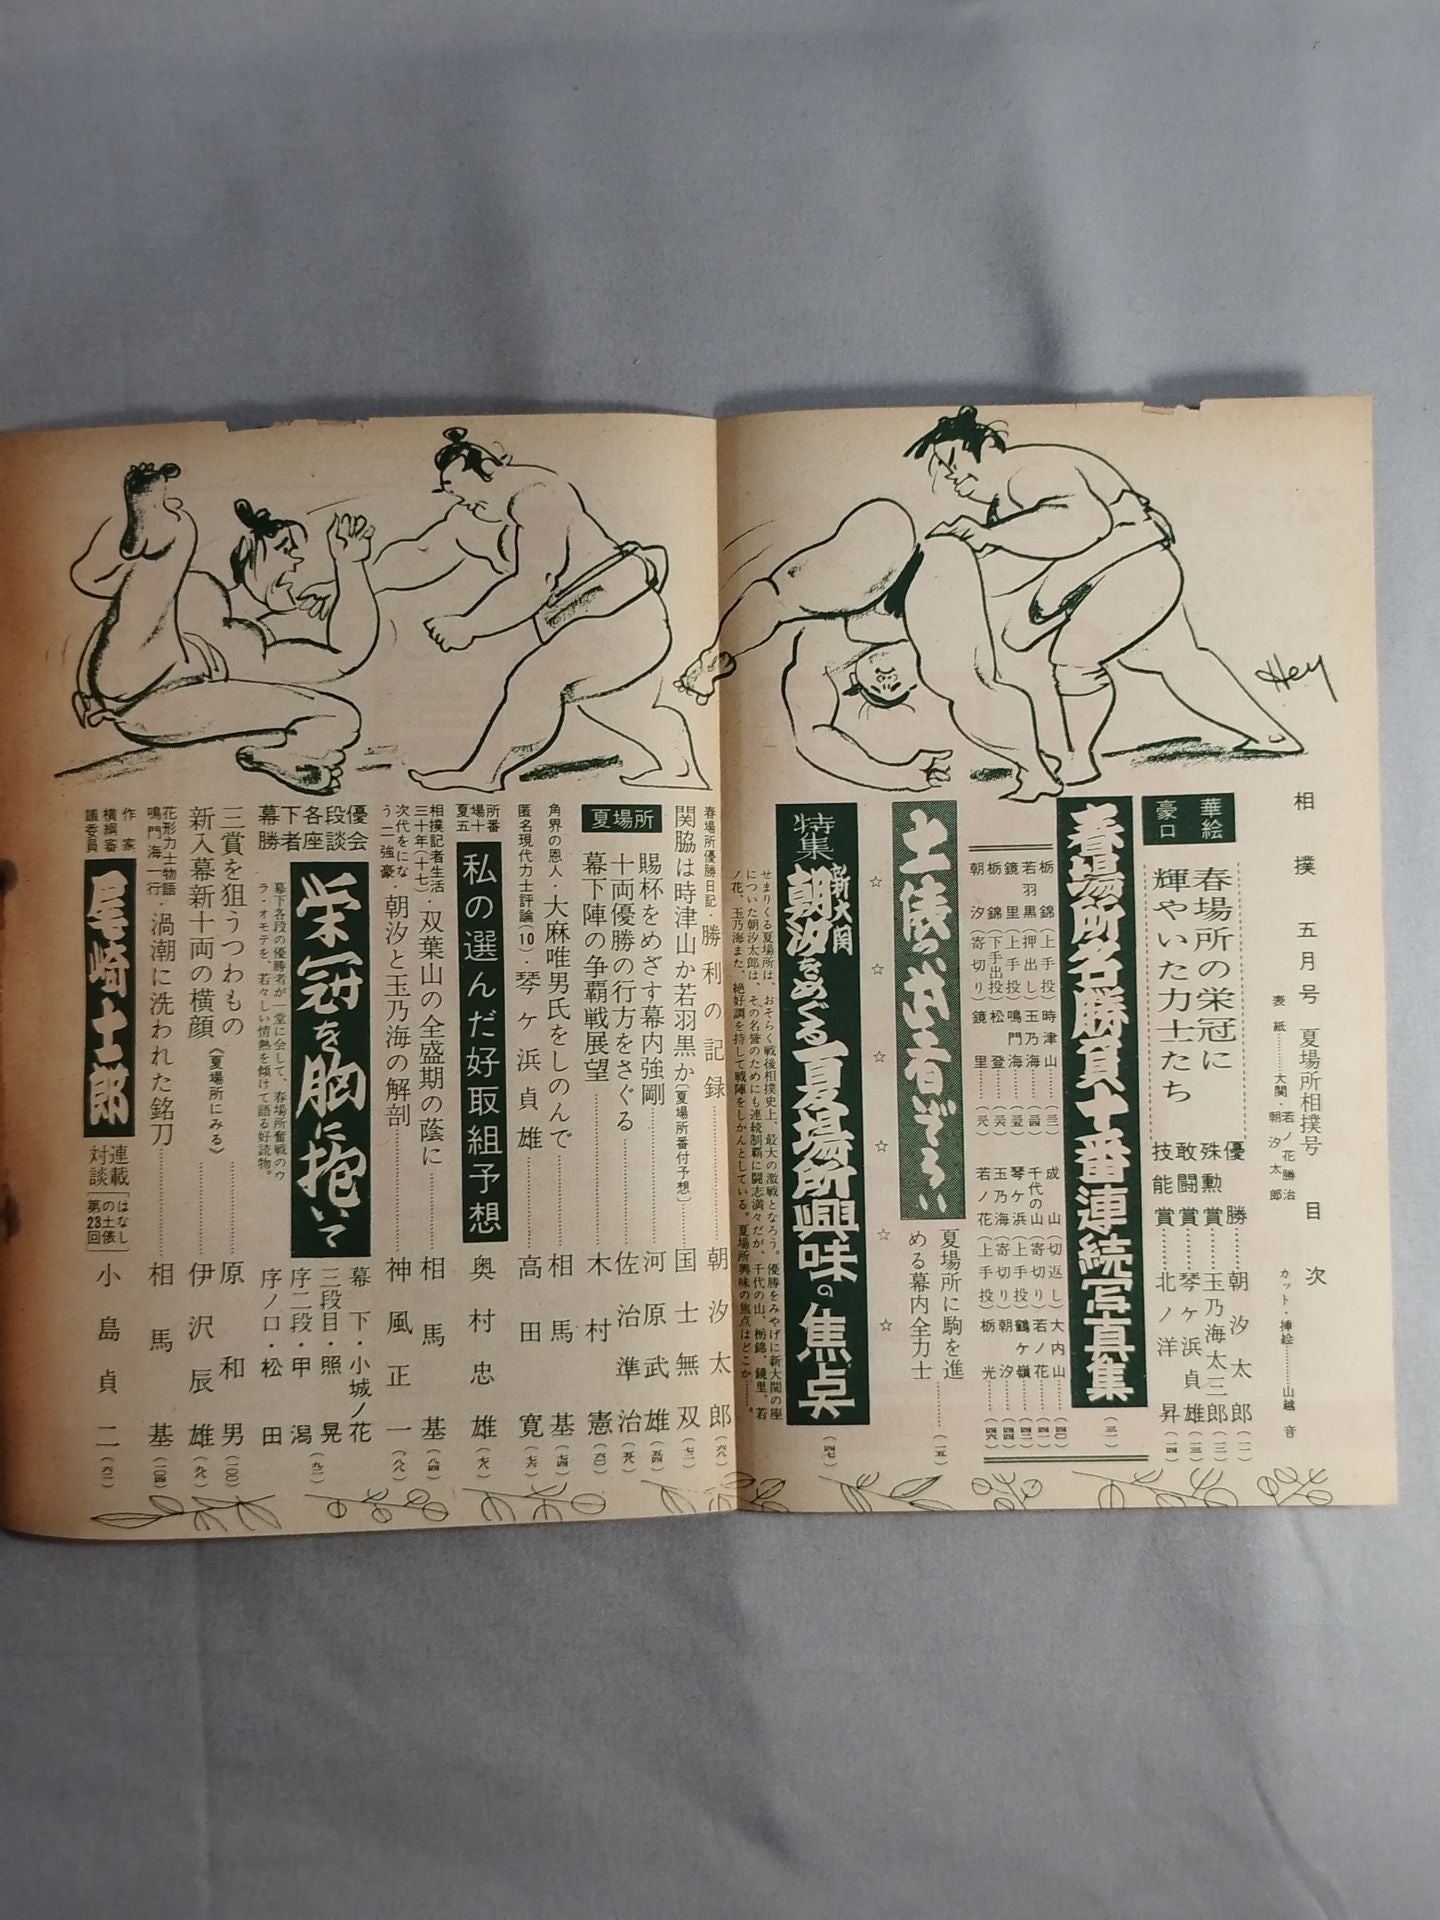 Hey
相撲 五月号 夏場所相撲号 目次
表紙………大関・若ノ花勝治
朝汐太郎
カット・挿絵………山越音
豪華口絵
春場所の栄冠に
輝やいた力士たち
優勝……朝汐太郎(一一)
殊勲賞……玉乃海太三郎(一二)
敢闘賞……琴ヶ浜貞雄(一三)
技能賞……北ノ洋昇(一四)
春場所名勝負十番連続写真集(三一)
栃錦(上手投)時津山
若羽黒(押出し)玉乃海
鏡里(上手投)鳴門海
栃錦(下手出投)松登
朝汐(寄切り)鏡里
成山(切返し)大内山(四〇)
千代の山(寄切り)若ノ花(四一)
琴ヶ浜(上手投)鶴ヶ嶺(四二)
玉乃海(寄切り)朝汐(四四)
若ノ花(上手投)栃光(四六)
土俵のお王者ぞろい
夏場所に駒を進
める幕内全力士………(一五)
特集 新大関朝汐をめぐる夏場所興味の焦点(四七)
せまりくる夏場所は、おそらく戦後相撲史上、最大の激戦となろう。優勝をみやげに新大関の座
についた朝汐太郎は、その名誉のためにも連続制覇に闘志満々だが、千代の山、栃錦、鏡里、若
ノ花、玉乃海また、絶好調を持して戦陣をしかんとしている。夏場所興味の焦点はどこか……。
春場所優勝日記・勝利の記録………朝汐太郎(六八)
関脇は時津山か若羽黒か〔夏場所番付予想〕………国士無双(七二)
夏場所
賜杯をめざす幕内強剛………河原武雄(五四)
十両優勝の行方をさぐる………佐治準治(五九)
幕下陣の争覇戦展望………木村憲(六〇)
角界の恩人・大麻唯男氏をしのんで………相馬基(七四)
匿名現代力士評論(10)・琴ヶ浜貞雄………高田寛(七六)
夏場所五十番 私の選んだ好取組予想 奥村忠雄(七八)
相撲記者生活三十年(十七)・双葉山の全盛期の蔭に………相馬基(八四)
次代をになう二強豪・朝汐と玉乃海の解剖………神風正一(八八)
幕下各段優勝者座談会 栄冠を胸に抱いて
幕下各段の優勝者が一堂に会して、春場所奮戦のウ
ラ・オモテを、若々しい情熱を傾けて語る好読物。
幕下・小城ノ花
三段目・照晃
序二段・甲潟
序ノ口・松田
(九二)
三賞を狙うつわもの………原和男(一〇〇)
新入幕新十両の横顔《夏場所にみる》………伊沢辰雄(九八)
花形力士物語・鳴門海一行・渦潮に洗われた銘刀………相馬基(一〇四)
作家 横綱審議委員 尾崎士郎
連載対談〔はなしの土俵 第23回〕 小島貞二(六二)